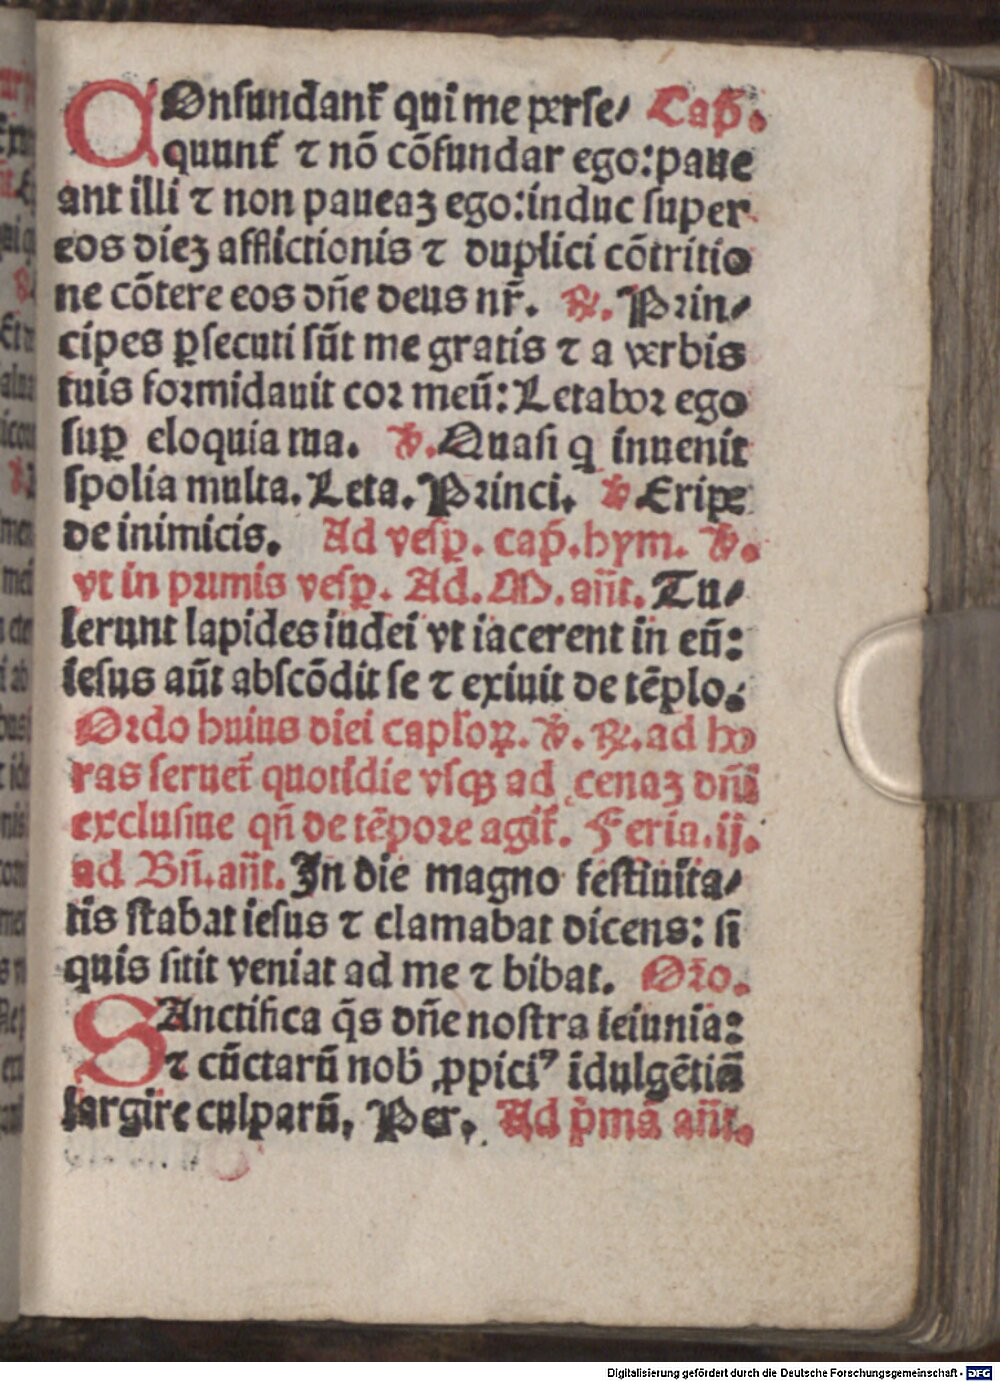 COnfundant᷑ qui me perse/ Cap̄.
quunt᷑ ⁊ nō cōfundar ego: paue
ant illi ⁊ non paueaꝫ ego: induc super
eos dieꝫ afflictionis ⁊ duplici cōtritio
ne cōtere eos dn̄e deus nr̄. ℟. Prin/
cipes ꝑsecuti sūt me gratis ⁊ a verbis
tuis formidauit cor meū: Letabor ego
suꝑ eloquia tua. ℣. Quasi q inuenit
spolia multa. Leta. Princi. ℣ Eripe
de inimicis. Ad vesꝑ. cap̄. hym. ℣.
vt in primis vesꝑ. Ad. M. an̄t. Tu/
lerunt lapides iudei vt iacerent in eū:
iesus aūt abscōdit se ⁊ exiuit de tēplo.
Ordo huius diei caplo2ꝝ. ℣. ℟. ad ho
ras seruet᷑ quotidie vsqꝫ ad cenaꝫ dn̄i
exclusiue qn̄ de tēpore agit᷑. Feria. ij.
ad Bn̄. an̄t. In die magno festiuita/
tis stabat iesus ⁊ clamabat dicens: si
quis sitit veniat ad me ⁊ bibat. Oro̅.
SAnctifica q̄s dn̄e nostra ieiunia:
⁊ cūctarū nob̄ ꝓpiciꝰ īdulgētiā
largire culparū. Per. Ad p̄mā an̄t.
Digitalisierung gefördert durch die Deutsche Forschungsgemeinschaft - DFG